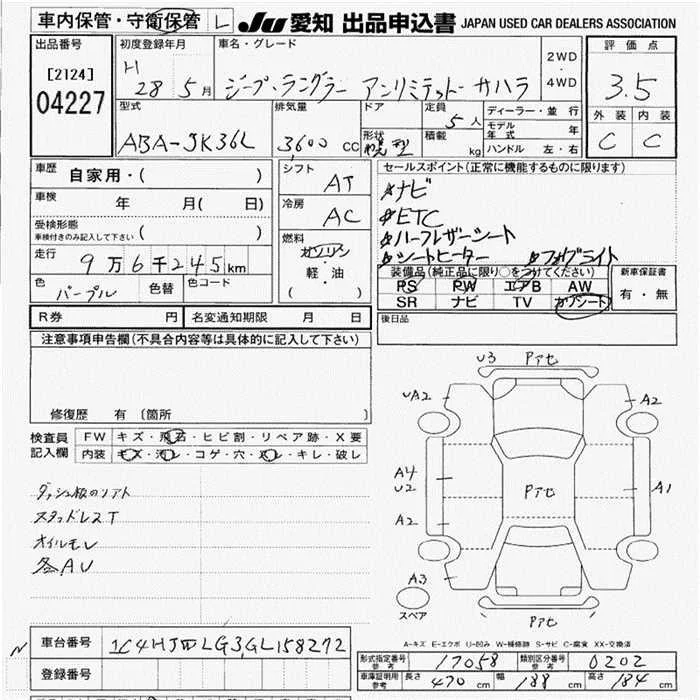 車内保管・守衛保管 L JU 愛知 出品申込書 JAPAN USED CAR DEALERS ASSOCIATION
出品番号 初度登録年月 車名・グレード 2WD 評価点
[2124] H 28 5月 ジープ・ラングラー アンリミテッド・サハラ 4WD 3.5
04227 型式 排気量 ドア 定員 5人 ディーラー・並行 外装 内装
ABA-JK36L 3,600 cc 形状 幌型 積載 kg モデル年式 年 C C
ハンドル 左・右
車歴 自家用・( ) シフト AT セールスポイント(正常に機能するものに限ります)
車検 年 月( 日) 冷房 AC ナビ
ETC
受検形態 車検付きのみ記入して下さい ( ) 燃料 ハーフレザーシート
走行 9万6千245km ガソリン シートヒーター フォグライト
軽・油 装備品(純正品に限り○をつけてください) 新車保証書
色 パープル 色替 色コード ( ) PS PW エアB AW 有・無
SR ナビ TV カワシート
R券 円 名変通知期限 月 日 後日品
注意事項申告欄(不具合内容等は具体的に記入して下さい)
修復歴 有 〔箇所 〕
検査員 FW キズ・飛石・ヒビ割・リペア跡・X要
記入欄 内装 キズ・汚レ・コゲ・穴・スレ・キレ・破レ
U3 Pアセ
UA2 A2
A4
U2 Pアセ A1
A2
A3
スペア Pアセ
スタッドレスT
オイルモレ
各AU
A-キズ E-エクボ U-凹み W-補修跡 S-サビ C-腐食 XX-交換済
車台番号 1C4HJWLG3GL158272
登録番号
形式指定番号 参考 17058 類別区分番号 参考 0202
車庫証明用 参考 長さ 470 cm 幅 188 cm 高さ 184 cm